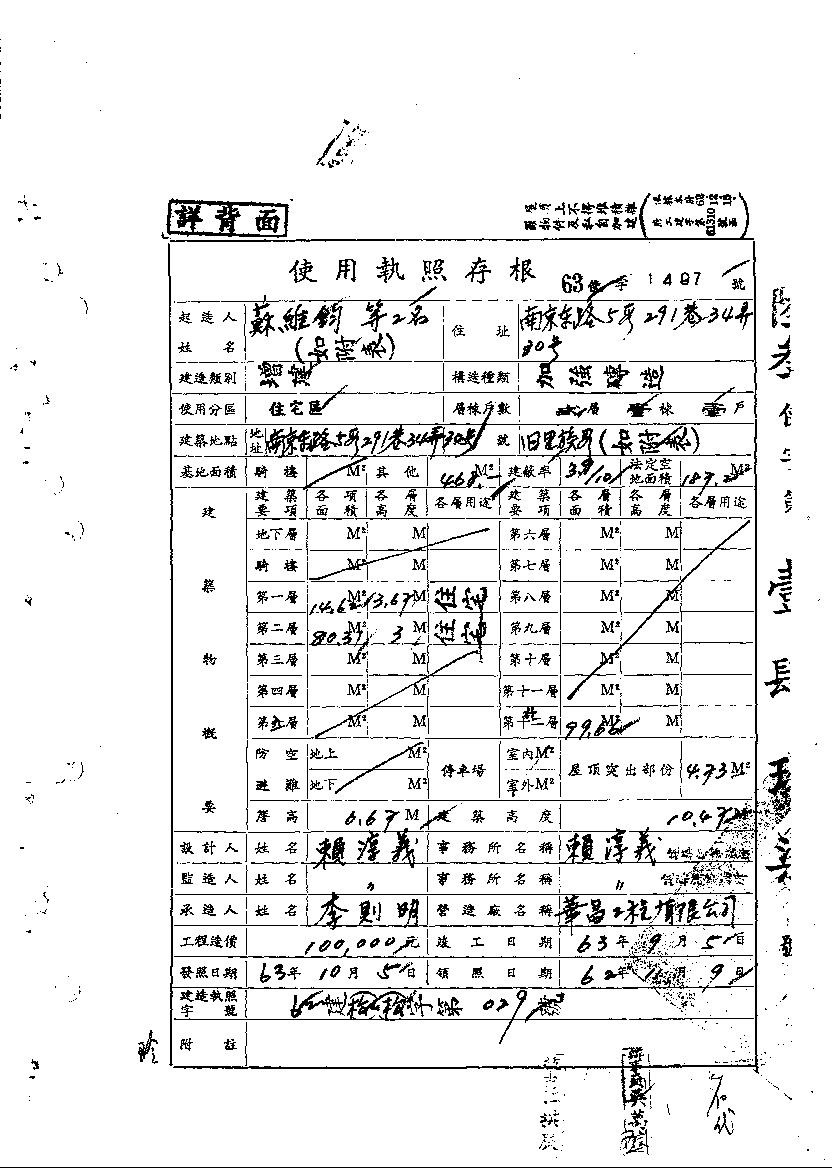 詳背面
使用執照存根 63 使字 1497 號
起造人姓名 蘇維鈞等2名(如附表) 住址 南京東路5段291巷34弄30号
建造類別 增建 構造種類 加強磚造
使用分區 住宅區 層棟戶數 層 壹棟 壹戶
建築地點 地址 南京東路5段291巷34弄30号 號 旧里族段(如附表)
基地面積 騎樓 M² 其他 468.- M² 建蔽率 3.8/10 法定空地面積 187.2 M²
建築物概要
建築要項 各項面積 各層高度 各層用途 建築要項 各層面積 各層高度 各層用途
地下層 M² M 第六層 M² M
騎樓 M² M 第七層 M² M
第一層 14.62 M² 3.67 M 住宅 第八層 M² M
第二層 80.31 M² 3 M 住宅 第九層 M² M
第三層 M² M 第十層 M² M
第四層 M² M 第十一層 M² M
第五層 M² M 99.66 M² M
防空避難 地上 M² 停車場 室內M² 屋頂突出部份 4.73M²
地下 M² 室外M²
簷高 6.67 M 建築高度 10.47
設計人 姓名 賴淳義 事務所名稱 賴淳義
監造人 姓名 〃 事務所名稱 〃
承造人 姓名 李則明 營造廠名稱 華昌工程有限公司
工程造價 100,000元 竣工日期 63年9月5日
發照日期 63年10月5日 領照日期 62年11月9日
建造執照字號 字第029號
附註